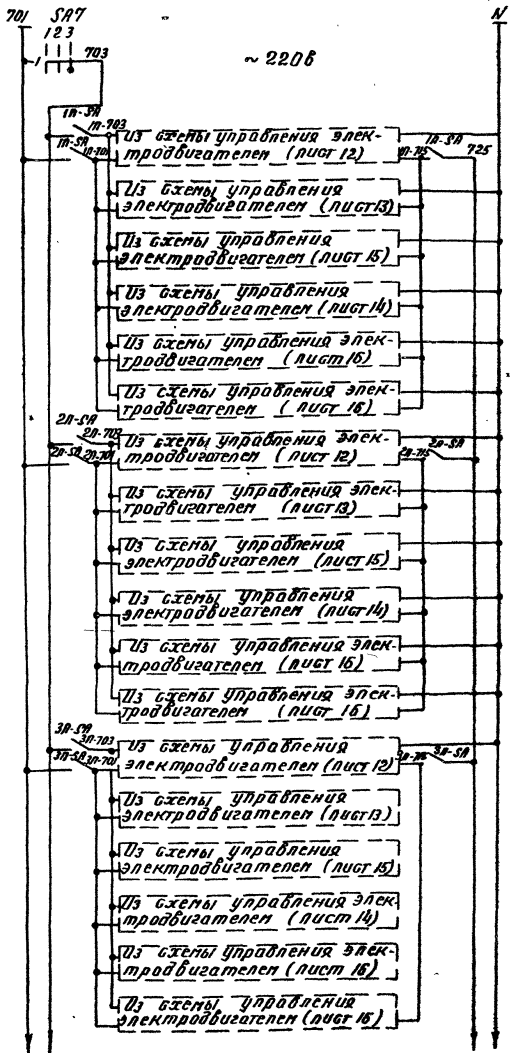 701 SA7 N
1 2 3
1 703
~ 220в
1П-SA 1П-703
1П-SA 1П-701
Из схемы управления элек-
тродвигателем (лист 12)
1П-715 1П-SA 725
Из схемы управления
электродвигателем (лист 13)
Из схемы управления
электродвигателем (лист 15)
Из схемы управления
электродвигателем (лист 14)
Из схемы управления элек-
тродвигателем (лист 16)
Из схемы управления элек-
тродвигателем (лист 16)
2П-SA 2П-703
2П-SA 2П-701
Из схемы управления элек-
тродвигателем (лист 12)
2П-715 2П-SA
Из схемы управления элек-
тродвигателем (лист 13)
Из схемы управления
электродвигателем (лист 15)
Из схемы управления
электродвигателем (лист 14)
Из схемы управления элек-
тродвигателем (лист 16)
Из схемы управления элек-
тродвигателем (лист 16)
3П-SA 3П-703
3П-SA 3П-701
Из схемы управления
электродвигателем (лист 12)
3П-SA
Из схемы управления
электродвигателем (лист 13)
Из схемы управления
электродвигателем (лист 15)
Из схемы управления элек-
тродвигателем (лист 14)
Из схемы управления элек-
тродвигателем (лист 16)
Из схемы управления
электродвигателем (лист 16)